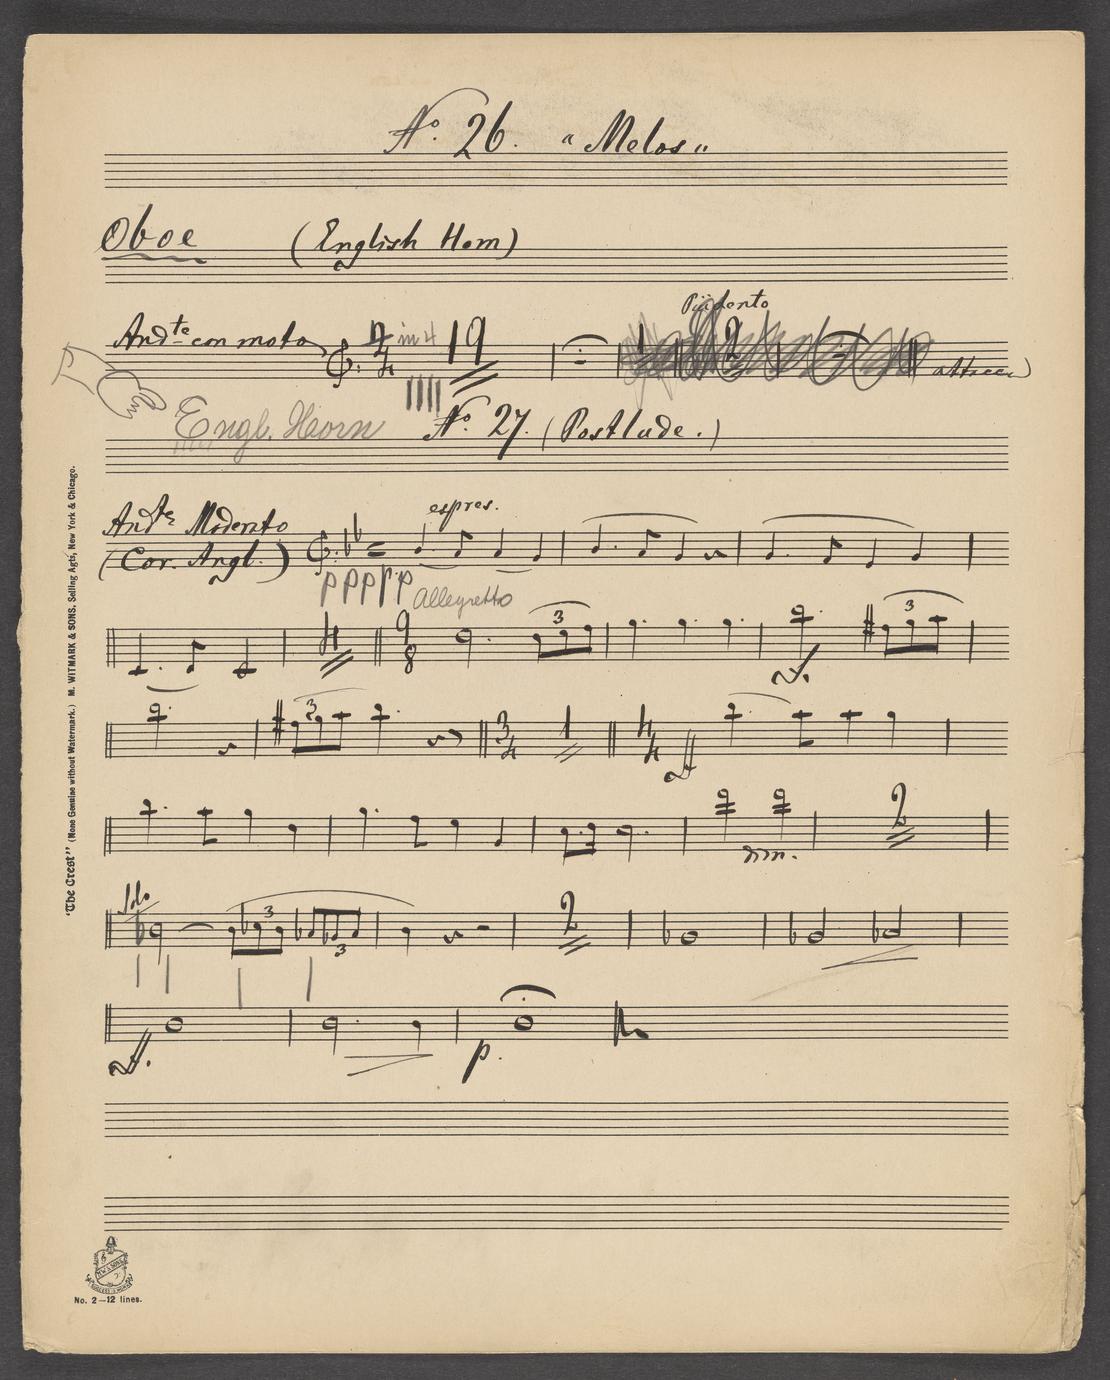 No. 26. "Melos"
Oboe (English Horn)
Andte con moto 4/4 in 4 19 1 2 attacca
Engl. Horn No. 27. (Postlude.)
Andte Moderato espres.
(Cor. Angl.)
ppppp Allegretto
4 9/8 3 f. 3
3 3/4 1 4/4 ff
dim. 2
Solo 3 3 2
ff. p.
"The Crest" (None Genuine without Watermark.) M. WITMARK & SONS, Selling Agts, New York & Chicago.
No. 2—12 lines.